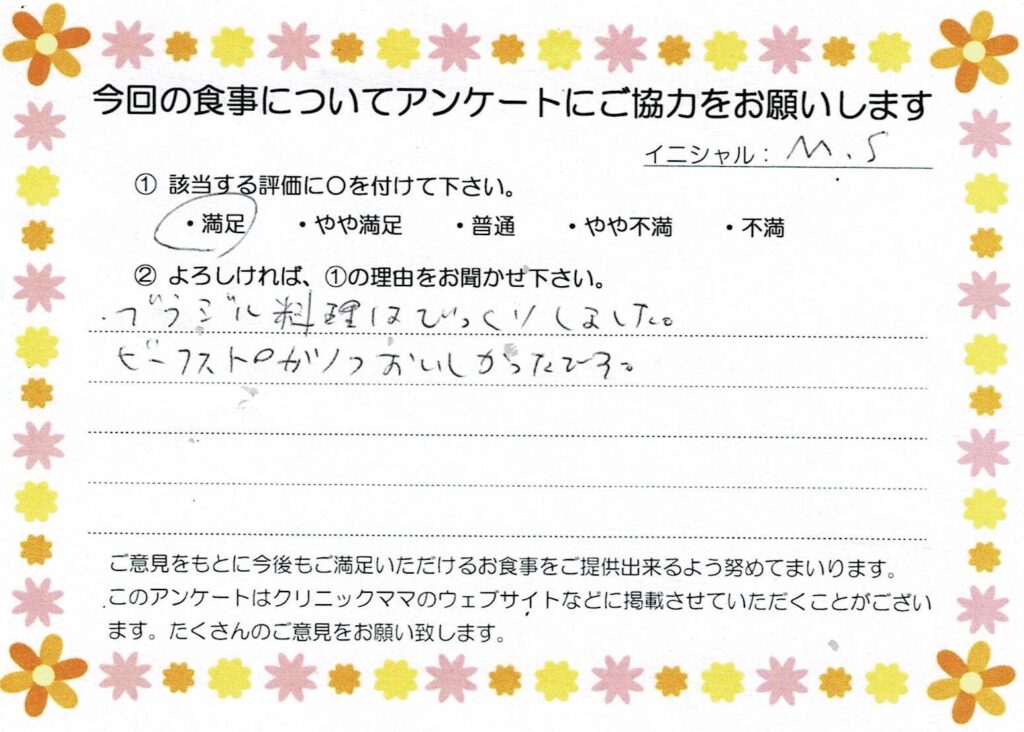 今回の食事についてアンケートにご協力をお願いします
イニシャル： M.S
① 該当する評価に〇を付けて下さい。
・満足 ・やや満足 ・普通 ・やや不満 ・不満
② よろしければ、①の理由をお聞かせ下さい。
ブラジル料理はびっくりしました。
ビーフストロガノフおいしかったです。
ご意見をもとに今後もご満足いただけるお食事をご提供出来るよう努めてまいります。
このアンケートはクリニックママのウェブサイトなどに掲載させていただくことがござい
ます。たくさんのご意見をお願い致します。